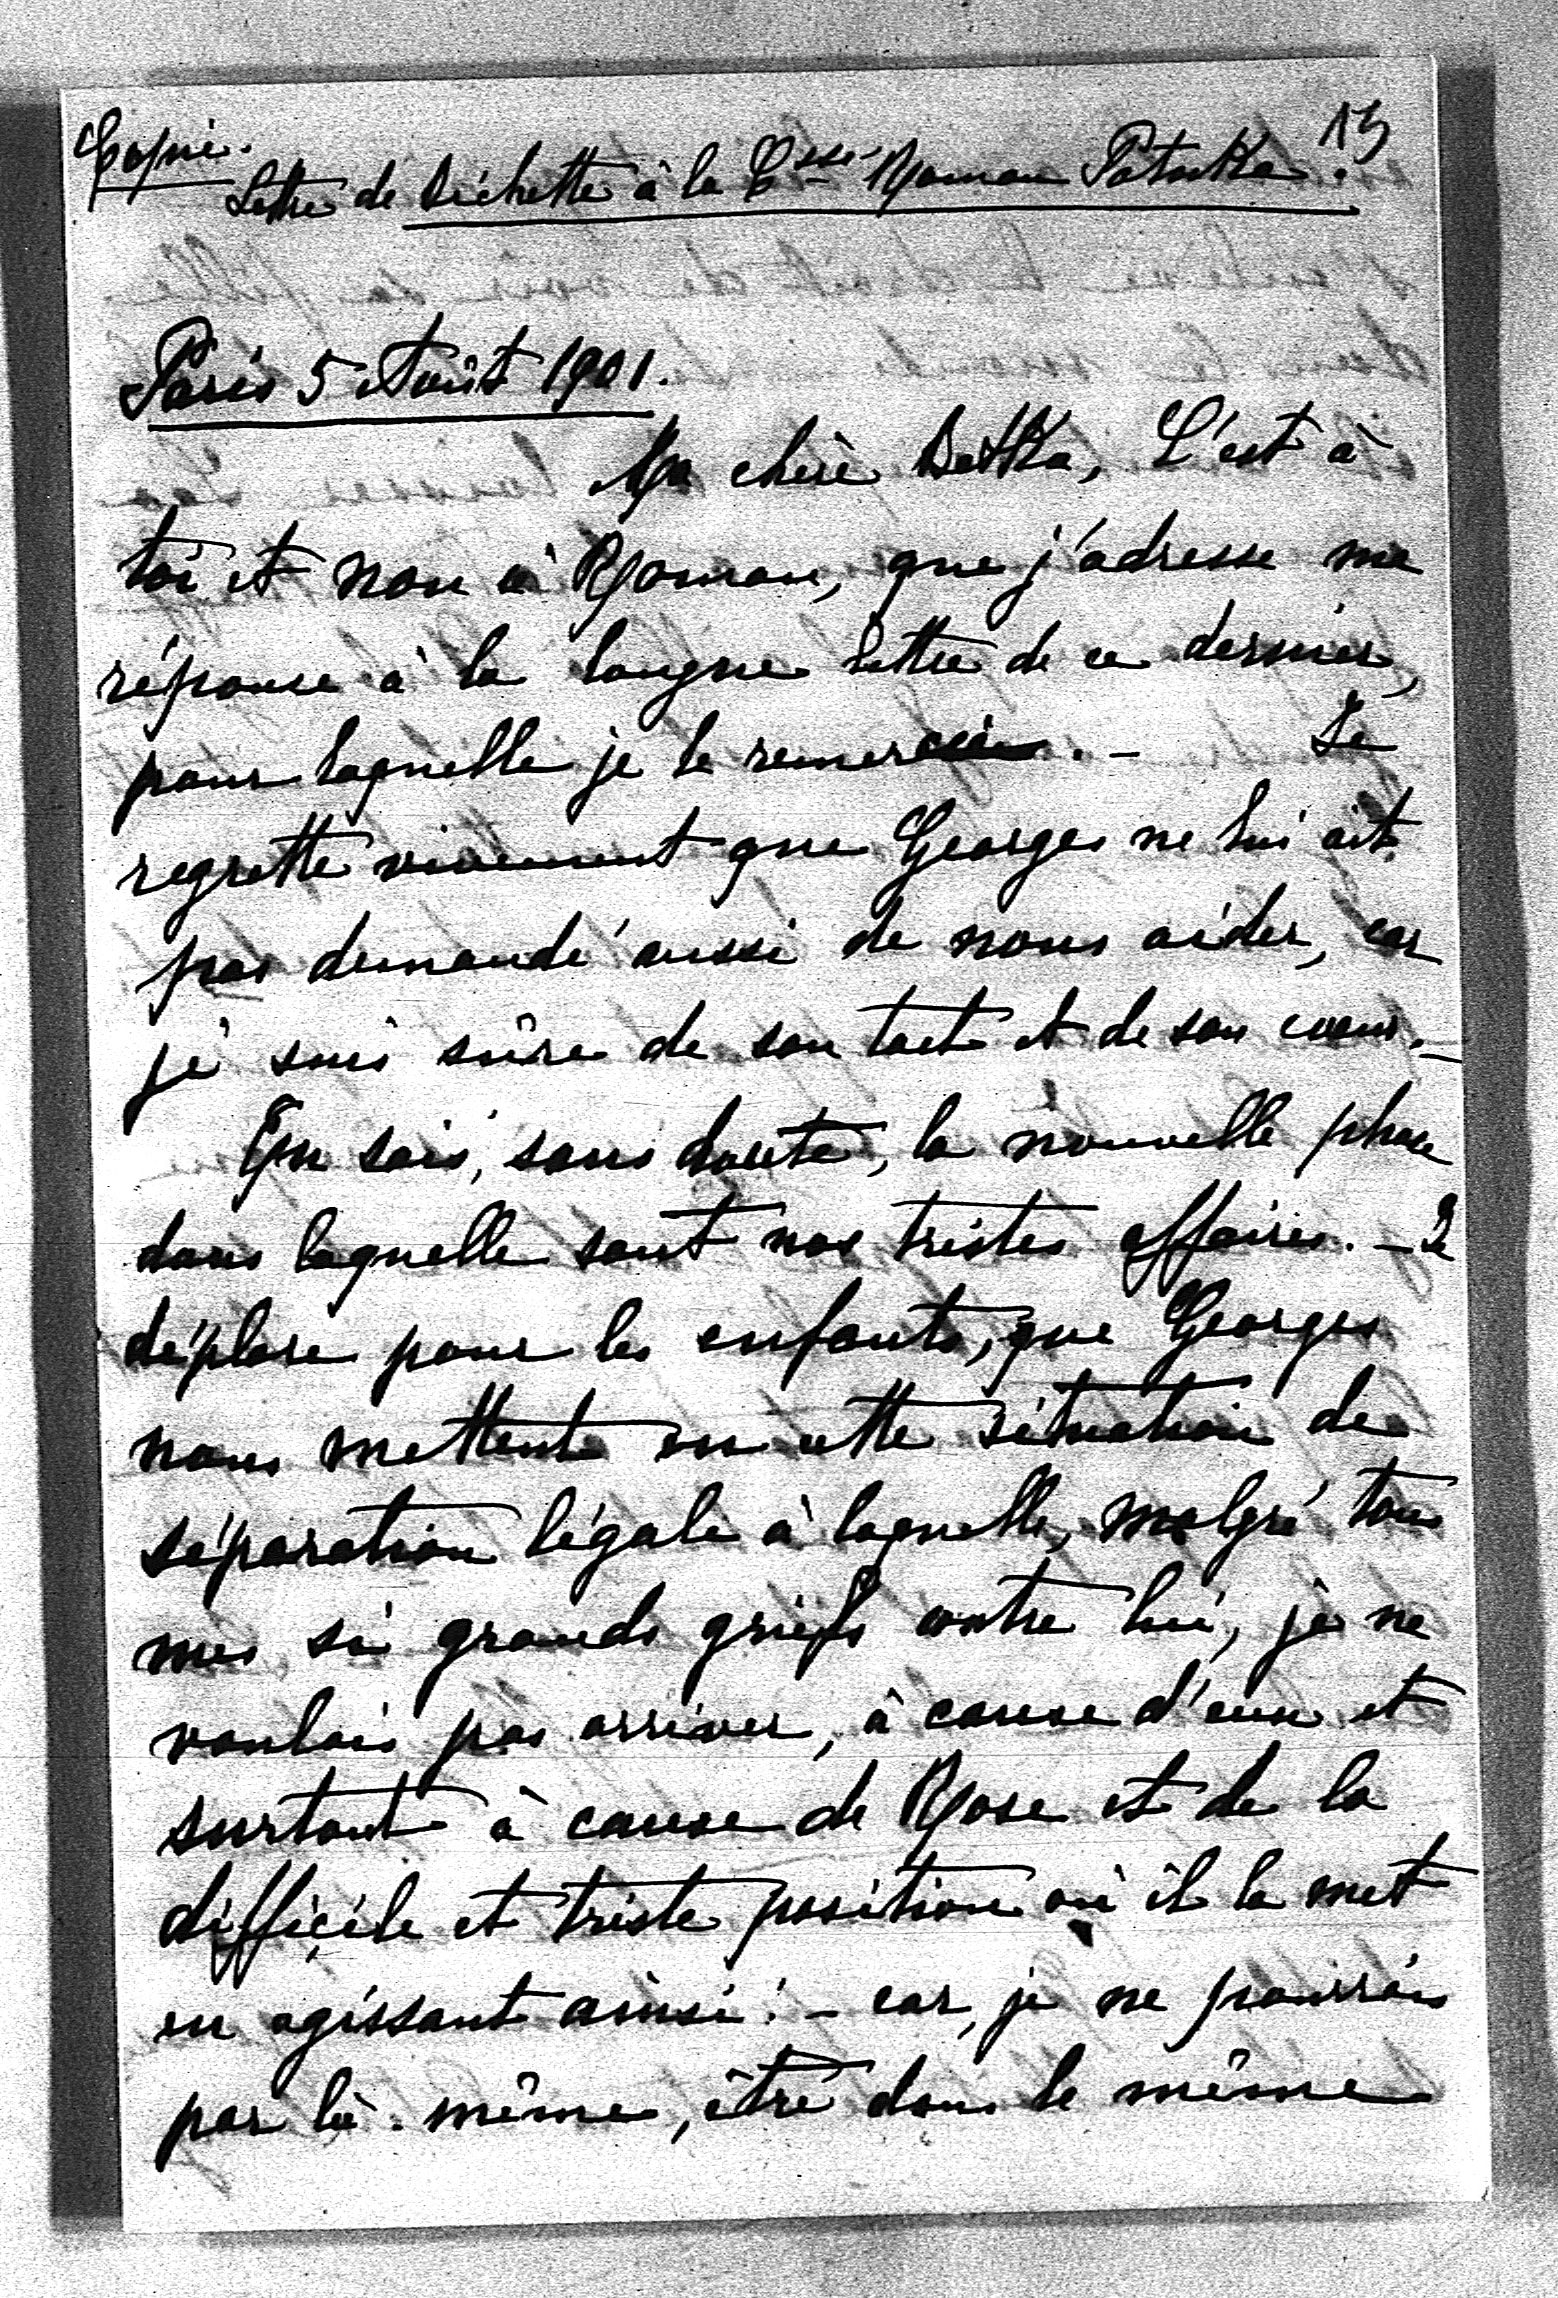 Copie.
13
Lettre de Bichette à la Csse Roman Potocka.
Paris 5 Août 1901.
Ma chère Betka, C'est à
toi et non à Roman, que j'adresse ma
réponse à la longue lettre de ce dernier,
pour laquelle je le remercie. – Je
regrette vivement que Georges ne lui ait
pas demandé aussi de nous aider, car
je suis sûre de son tact et de son cœur. –
Tu sais, sans doute, la nouvelle phase
dans laquelle sont nos tristes affaires. – Je
déplore pour les enfants, que Georges
nous mettent en cette situation de
séparation légale à laquelle, malgré tous
mes si grands griefs contre lui, je ne
voulais pas arriver, à cause d'eux et
surtout à cause de Rose et de la
difficile et triste position où il la met
en agissant ainsi: – car, je ne pourrais
par là-même, être dans le même